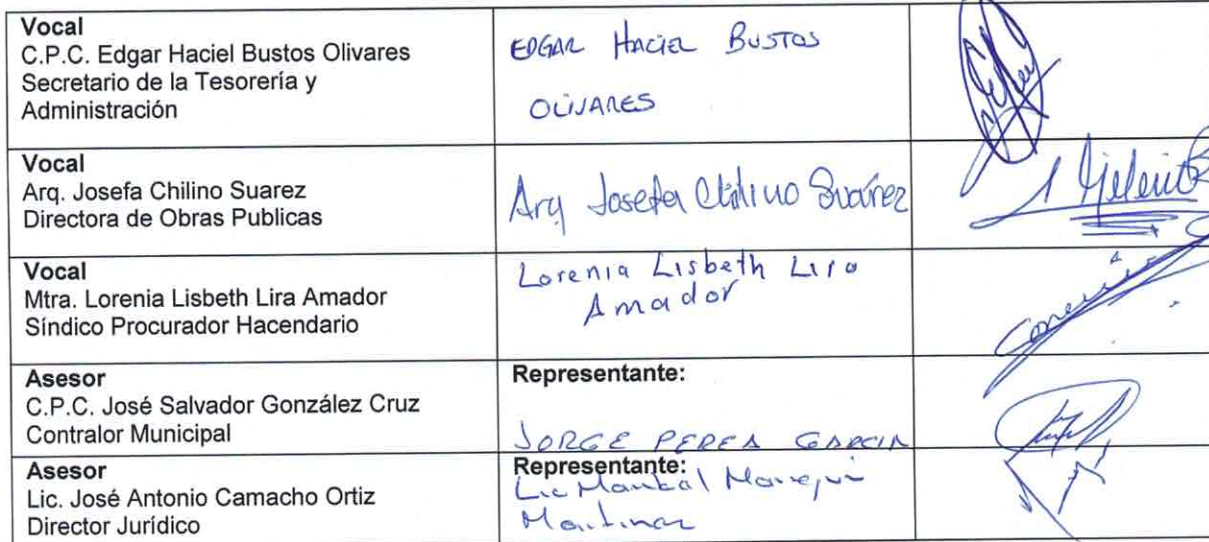 Vocal
C.P.C. Edgar Haciel Bustos Olivares
Secretario de la Tesorería y
Administración
EDGAR HACIEL BUSTOS
OLIVARES
Vocal
Arq. Josefa Chilino Suarez
Directora de Obras Publicas
Arq Josefa Chilino Suárez
Vocal
Mtra. Lorenia Lisbeth Lira Amador
Síndico Procurador Hacendario
Lorenia Lisbeth Lira
Amador
Asesor
C.P.C. José Salvador González Cruz
Contralor Municipal
Representante:
JORGE PEREA GARCIA
Asesor
Lic. José Antonio Camacho Ortiz
Director Jurídico
Representante:
Lic
Martinez